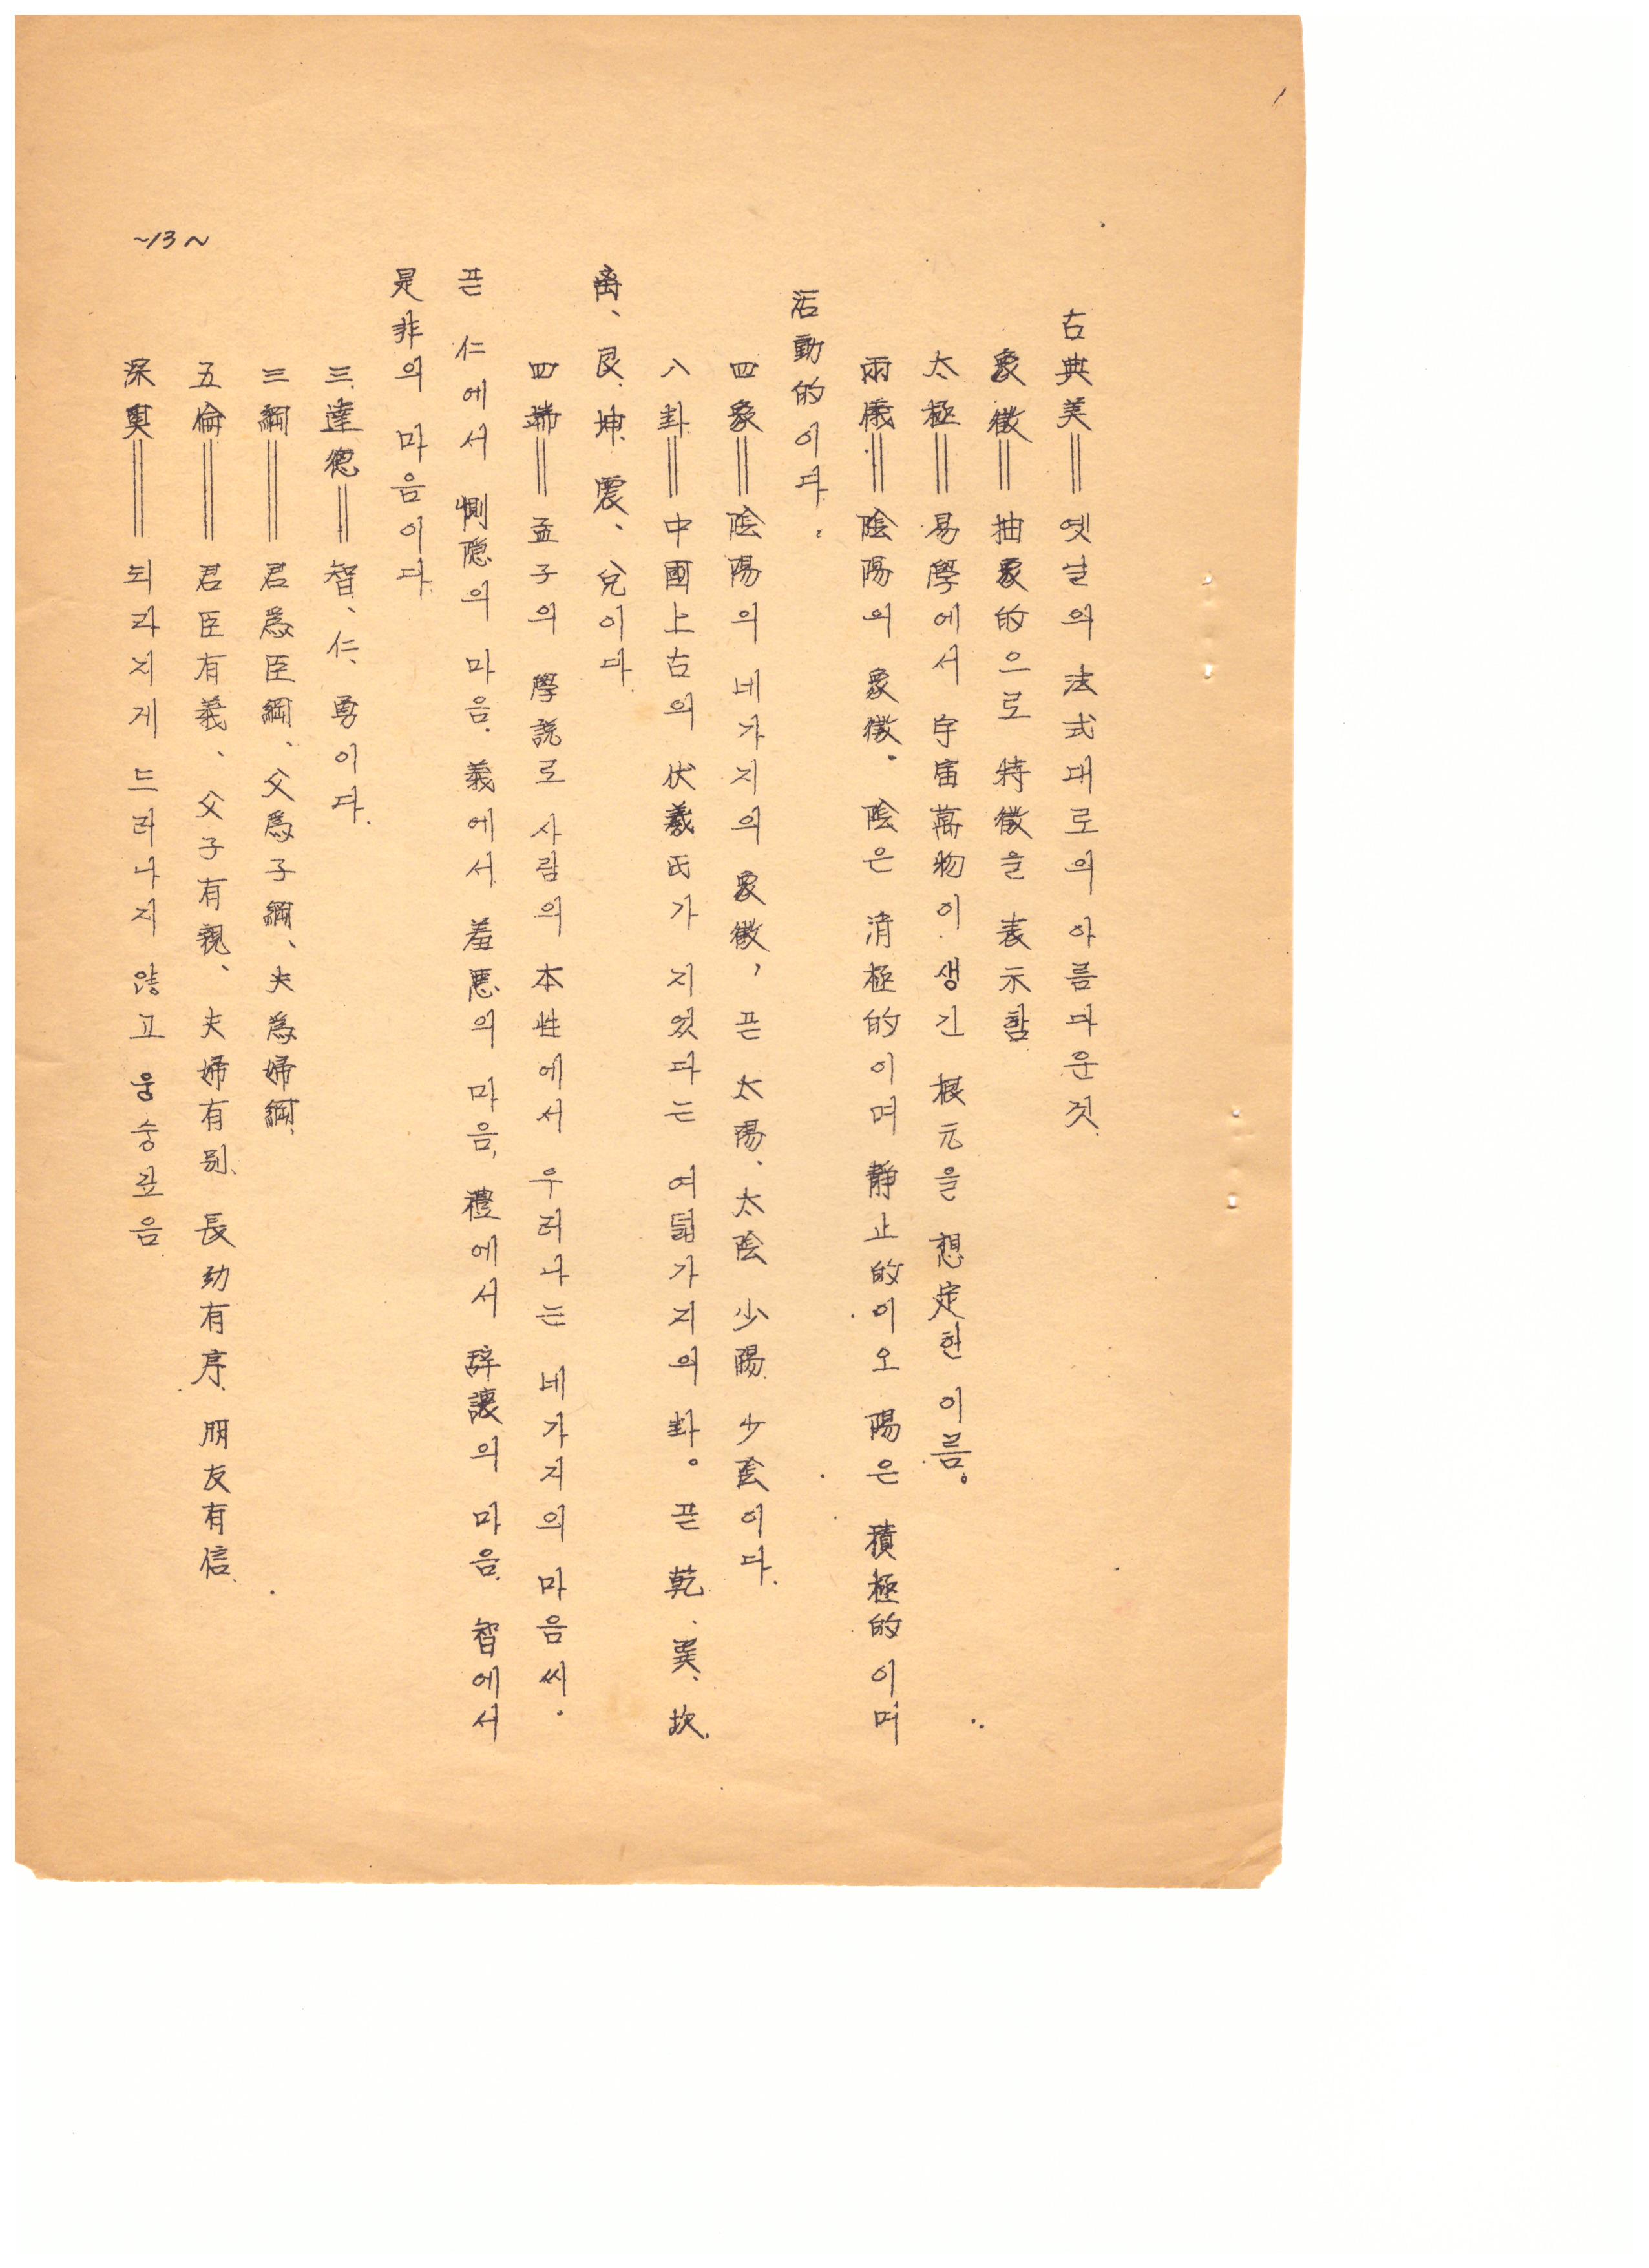 古典美＝옛날의 法式대로의 아름다운것.
象徵＝抽象的으로 特徵을 表示함
太極＝易學에서 宇宙萬物이 생긴 根元을 想定한 이름。
兩儀＝陰陽의 象徵. 陰은 消極的이며 靜止的이오 陽은 積極的이며
活動的이다.
四象＝陰陽의 네가지의 象徵, 끋 太陽、太陰 少陽 少陰이다.
八卦＝中國上古의 伏羲氏가 지었다는 여덟가지의 卦。끋 乾、巽、坎、
离、艮、坤、震、兌이다.
四端＝孟子의 學說로 사람의 本性에서 우러나는 네가지의 마음씨.
끋 仁에서 惻隱의 마음. 義에서 羞惡의 마음, 禮에서 辞讓의 마음. 智에서
是非의 마음이다.
三達德＝智、仁、勇이다.
三綱＝君爲臣綱、父爲子綱、夫爲婦綱.
五倫＝君臣有義、父子有親、夫婦有别、長幼有序、朋友有信.
深奧＝되라지게 드러나지 않고 웅숭깊음
~13~